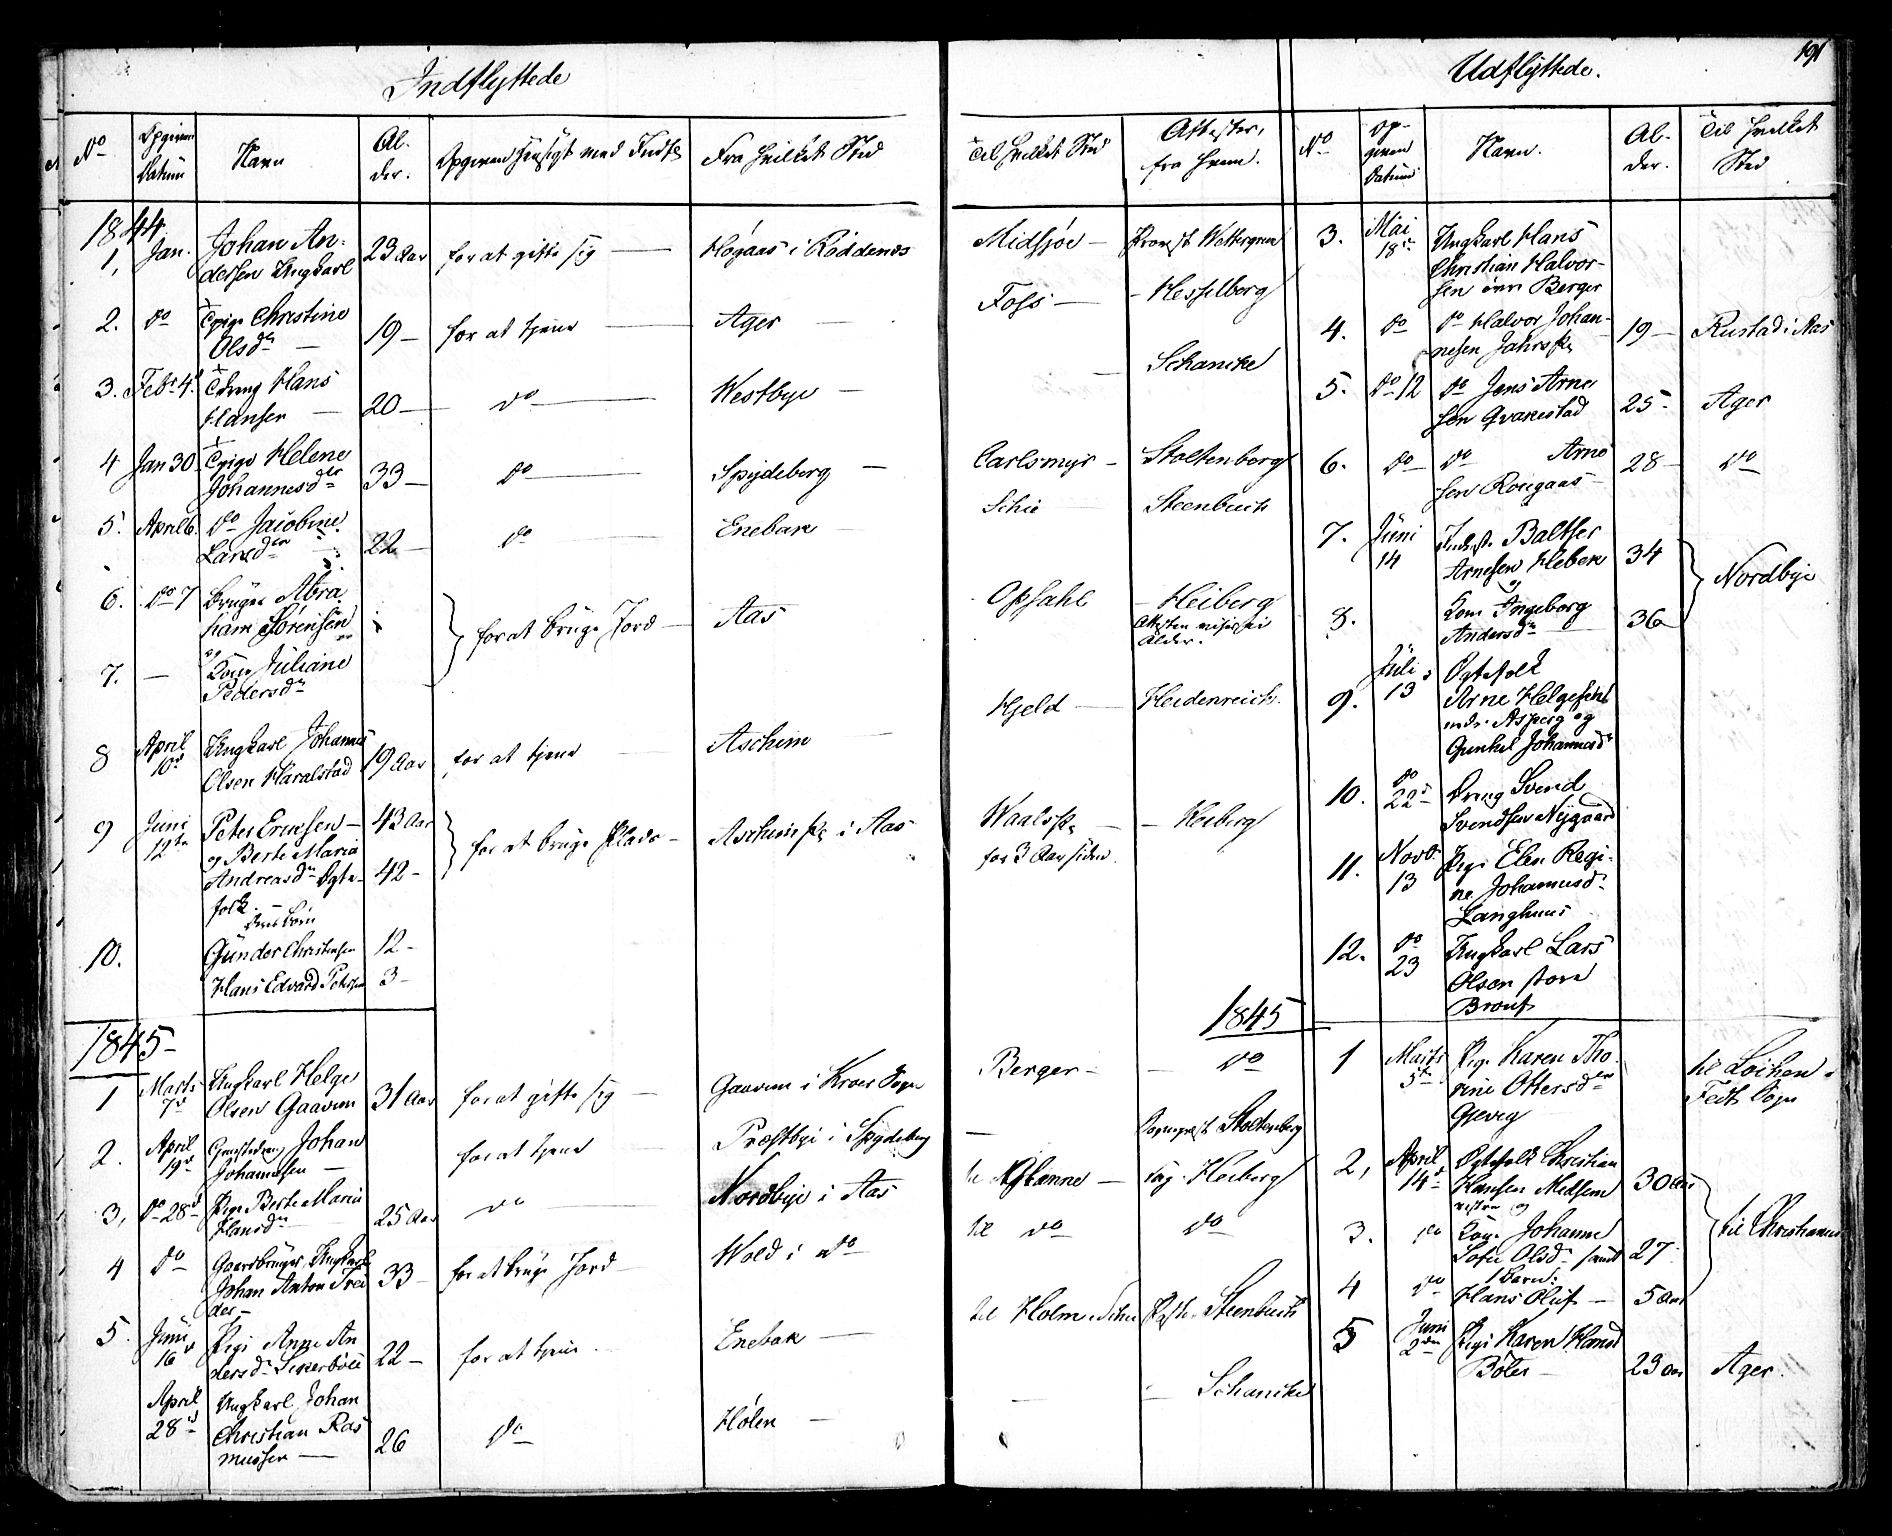 Indflyttede
No
Opgiven
Datum
Navn
Al-
der.
Opgiven Hensigt med Indfl.
Fra hvilket Sted
Til hvilket Sted
Attester,
fra hvem.
1844
1, Jan. Johan An- 23 Aar for at gifte sig Høgaas i Røddenæs Midsjøe Provst Wettergren
dersen Ungkarl
2. do Pige Christine 19 for at tjene Ager Foss Hesselberg
Olsd
3. Feb. 4. Dreng Hans 20 do Westbye Schancke
Hansen
4 Jan 30 Pige Helene 33 do Spydeberg Carlsmyr Stoltenberg
Johannesdr
5. April 6. do Jacobine 22 do Enebak Schie Steenbuch
Larsd
6. do 7 Bruger Abra- for at bruge Jord Aas Opsahl Heiberg
ham Sørensen
og
7. Kone Juliane
Pedersd
8 April Ungkarl Johannes 19 Aar for at tjene Aschim Hjeld Heidenreich.
10 Olsen Haralstad
9 Juni Peter Ericksen 43 Aar for at bruge Plads i Aas Heiberg
12te og Berte Maria for 3 Aar siden.
Andreasd Ægte- 42
folk.
Børn
10. Gunder Christensen 12
Hans Edvard Petersen 3
1845
1 Marts Ungkarl Helge 31 Aar for at gifte sig Gaavum i Kroer Sogn Berger do
7 Olsen Gaavum
2. April Johan for at tjene Præstbye i Spydeberg Stoltenberg
19 Johannesen
3, do 28 Pige Berte Maria 25 Aar do Nordbye i Aas Heiberg
Hansd
4 do Gaardbruger Ungkarl 33 for at bruge Jord Wold i do til do do
Johan Anton Trei-
der
5. Juni Pige Anne An- 22 for at tjene Enebak til Holm Steenbuch
16 dersd
April Ungkarl Johan
28 Christian Ras- 26 do Hølen Schancke
mussen
Udflyttede.
191
No
Op-
given
Datum
Navn.
Al-
der.
Til hvilket
Sted
3. Mai Ungkarl Hans
18 Christian Halvor-
sen Berger
4. do do Halvor Johan- 19 Rustad i Aas
nesen
5. do 12 do Jens Arne- 25 Ager
sen Qvakestad
6. do do Arne- 28 do
sen
7. Juni Baltser 34 Nordbye
14 Arnesen
og
8. Kone Ingeborg 36
Andersd
Juli Ægtefolk
9. 13 Arne Helgesen
og
Gunhil Johannesd
10. do Dreng Svend
22 Svendsen Nygaard
11. Novb. Pige Elen Regi-
13 ne Johannesd
Langhuus
12. do Ungkarl Lars
23 Olsen store
1845
1 Marts Pige Karen Tho-
5 rine Ottersd
Sogn
2, April Ægtefolk Christian 30 Aar til Christiania
14 Hansen
og
3. do Kone Johanne 27
Sofie Olsd samt
1 Barn:
4 do Hans Oluf 5 Aar
5 Juni Pige Karen Hansd 23 Aar Ager.
2den Bøler